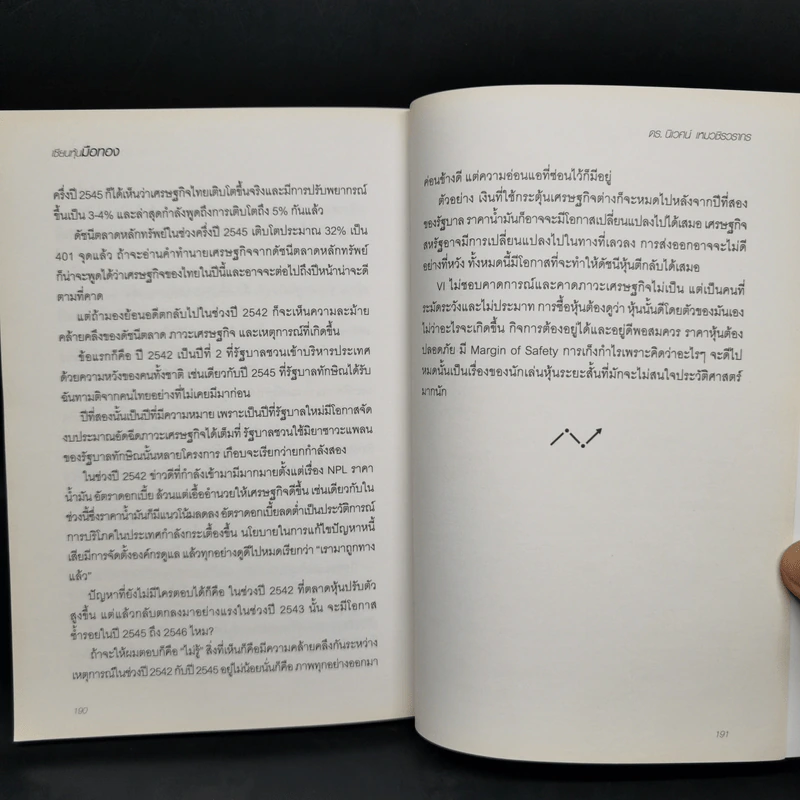 เซียนหุ้นมือทอง
ครึ่งปี 2545 ก็ได้เห็นว่าเศรษฐกิจไทยเติบโตขึ้นจริงและมีการปรับพยากรณ์
ขึ้นเป็น 3-4% และล่าสุดกำลังพูดถึงการเติบโตถึง 5% กันแล้ว
ดัชนีตลาดหลักทรัพย์ในช่วงครึ่งปี 2545 เติบโตประมาณ 32% เป็น
401 จุดแล้ว ถ้าจะอ่านคำทำนายเศรษฐกิจจากดัชนีตลาดหลักทรัพย์
ก็น่าจะพูดได้ว่าเศรษฐกิจของไทยในปีนี้และอาจจะต่อไปถึงปีหน้าน่าจะดี
ตามที่คาด
แต่ถ้ามองย้อนอดีตกลับไปในช่วงปี 2542 ก็จะเห็นความละม้าย
คล้ายคลึงของดัชนีตลาด ภาวะเศรษฐกิจ และเหตุการณ์ที่เกิดขึ้น
ข้อแรกก็คือ ปี 2542 เป็นปีที่ 2 ที่รัฐบาลชวนเข้าบริหารประเทศ
ด้วยความหวังของคนทั้งชาติ เช่นเดียวกับปี 2545 ที่รัฐบาลทักษิณได้รับ
ฉันทามติจากคนไทยอย่างที่ไม่เคยมีมาก่อน
ปีที่สองนั้นเป็นปีที่มีความหมาย เพราะเป็นปีที่รัฐบาลใหม่มีโอกาสจัด
งบประมาณอัดฉีดภาวะเศรษฐกิจได้เต็มที่ รัฐบาลชวนใช้มิยาซาวะแพลน
ของรัฐบาลทักษิณนั้นหลายโครงการ เกือบจะเรียกว่ายกกำลังสอง
ในช่วงปี 2542 ข่าวดีที่กำลังเข้ามามีมากมายตั้งแต่เรื่อง NPL ราคา
น้ำมัน อัตราดอกเบี้ย ล้วนแต่เอื้ออำนวยให้เศรษฐกิจดีขึ้น เช่นเดียวกับใน
ช่วงนี้ซึ่งราคาน้ำมันก็มีแนวโน้มลดลง อัตราดอกเบี้ยลดต่ำเป็นประวัติการณ์
การบริโภคในประเทศกำลังกระเตื้องขึ้น นโยบายในการแก้ไขปัญหาหนี้
เสียมีการจัดตั้งองค์กรดูแล แล้วทุกอย่างดูดีไปหมดเรียกว่า “เรามาถูกทาง
แล้ว”
ปัญหาที่ยังไม่มีใครตอบได้ก็คือ ในช่วงปี 2542 ที่ตลาดหุ้นปรับตัว
สูงขึ้น แต่แล้วกลับตกลงมาอย่างแรงในช่วงปี 2543 นั้น จะมีโอกาส
ซ้ำรอยในปี 2545 ถึง 2546 ไหม?
ถ้าจะให้ผมตอบก็คือ “ไม่รู้” สิ่งที่เห็นก็คือมีความคล้ายคลึงกันระหว่าง
เหตุการณ์ในช่วงปี 2542 กับปี 2545 อยู่ไม่น้อยนั่นก็คือ ภาพทุกอย่างออกมา
190
ดร. นิเวศน์ เหมวชิรวรากร
ค่อนข้างดี แต่ความอ่อนแอที่ซ่อนไว้ก็มีอยู่
ตัวอย่าง เงินที่ใช้กระตุ้นเศรษฐกิจต่างก็จะหมดไปหลังจากปีที่สอง
ของรัฐบาล ราคาน้ำมันก็อาจจะมีโอกาสเปลี่ยนแปลงไปได้เสมอ เศรษฐกิจ
สหรัฐอาจมีการเปลี่ยนแปลงไปในทางที่เลวลง การส่งออกอาจจะไม่ดี
อย่างที่หวัง ทั้งหมดนี้มีโอกาสที่จะทำให้ดัชนีหุ้นตีกลับได้เสมอ
VI ไม่ชอบคาดการณ์และคาดภาวะเศรษฐกิจไม่เป็น แต่เป็นคนที่
ระมัดระวังและไม่ประมาท การซื้อหุ้นต้องดูว่า หุ้นนั้นดีโดยตัวของมันเอง
ไม่ว่าอะไรจะเกิดขึ้น กิจการต้องอยู่ได้และอยู่ดีพอสมควร ราคาหุ้นต้อง
ปลอดภัย มี Margin of Safety การเก็งกำไรเพราะคิดว่าอะไรๆ จะดีไป
หมดนั้นเป็นเรื่องของนักเล่นหุ้นระยะสั้นที่มักจะไม่สนใจประวัติศาสตร์
มากนัก
191